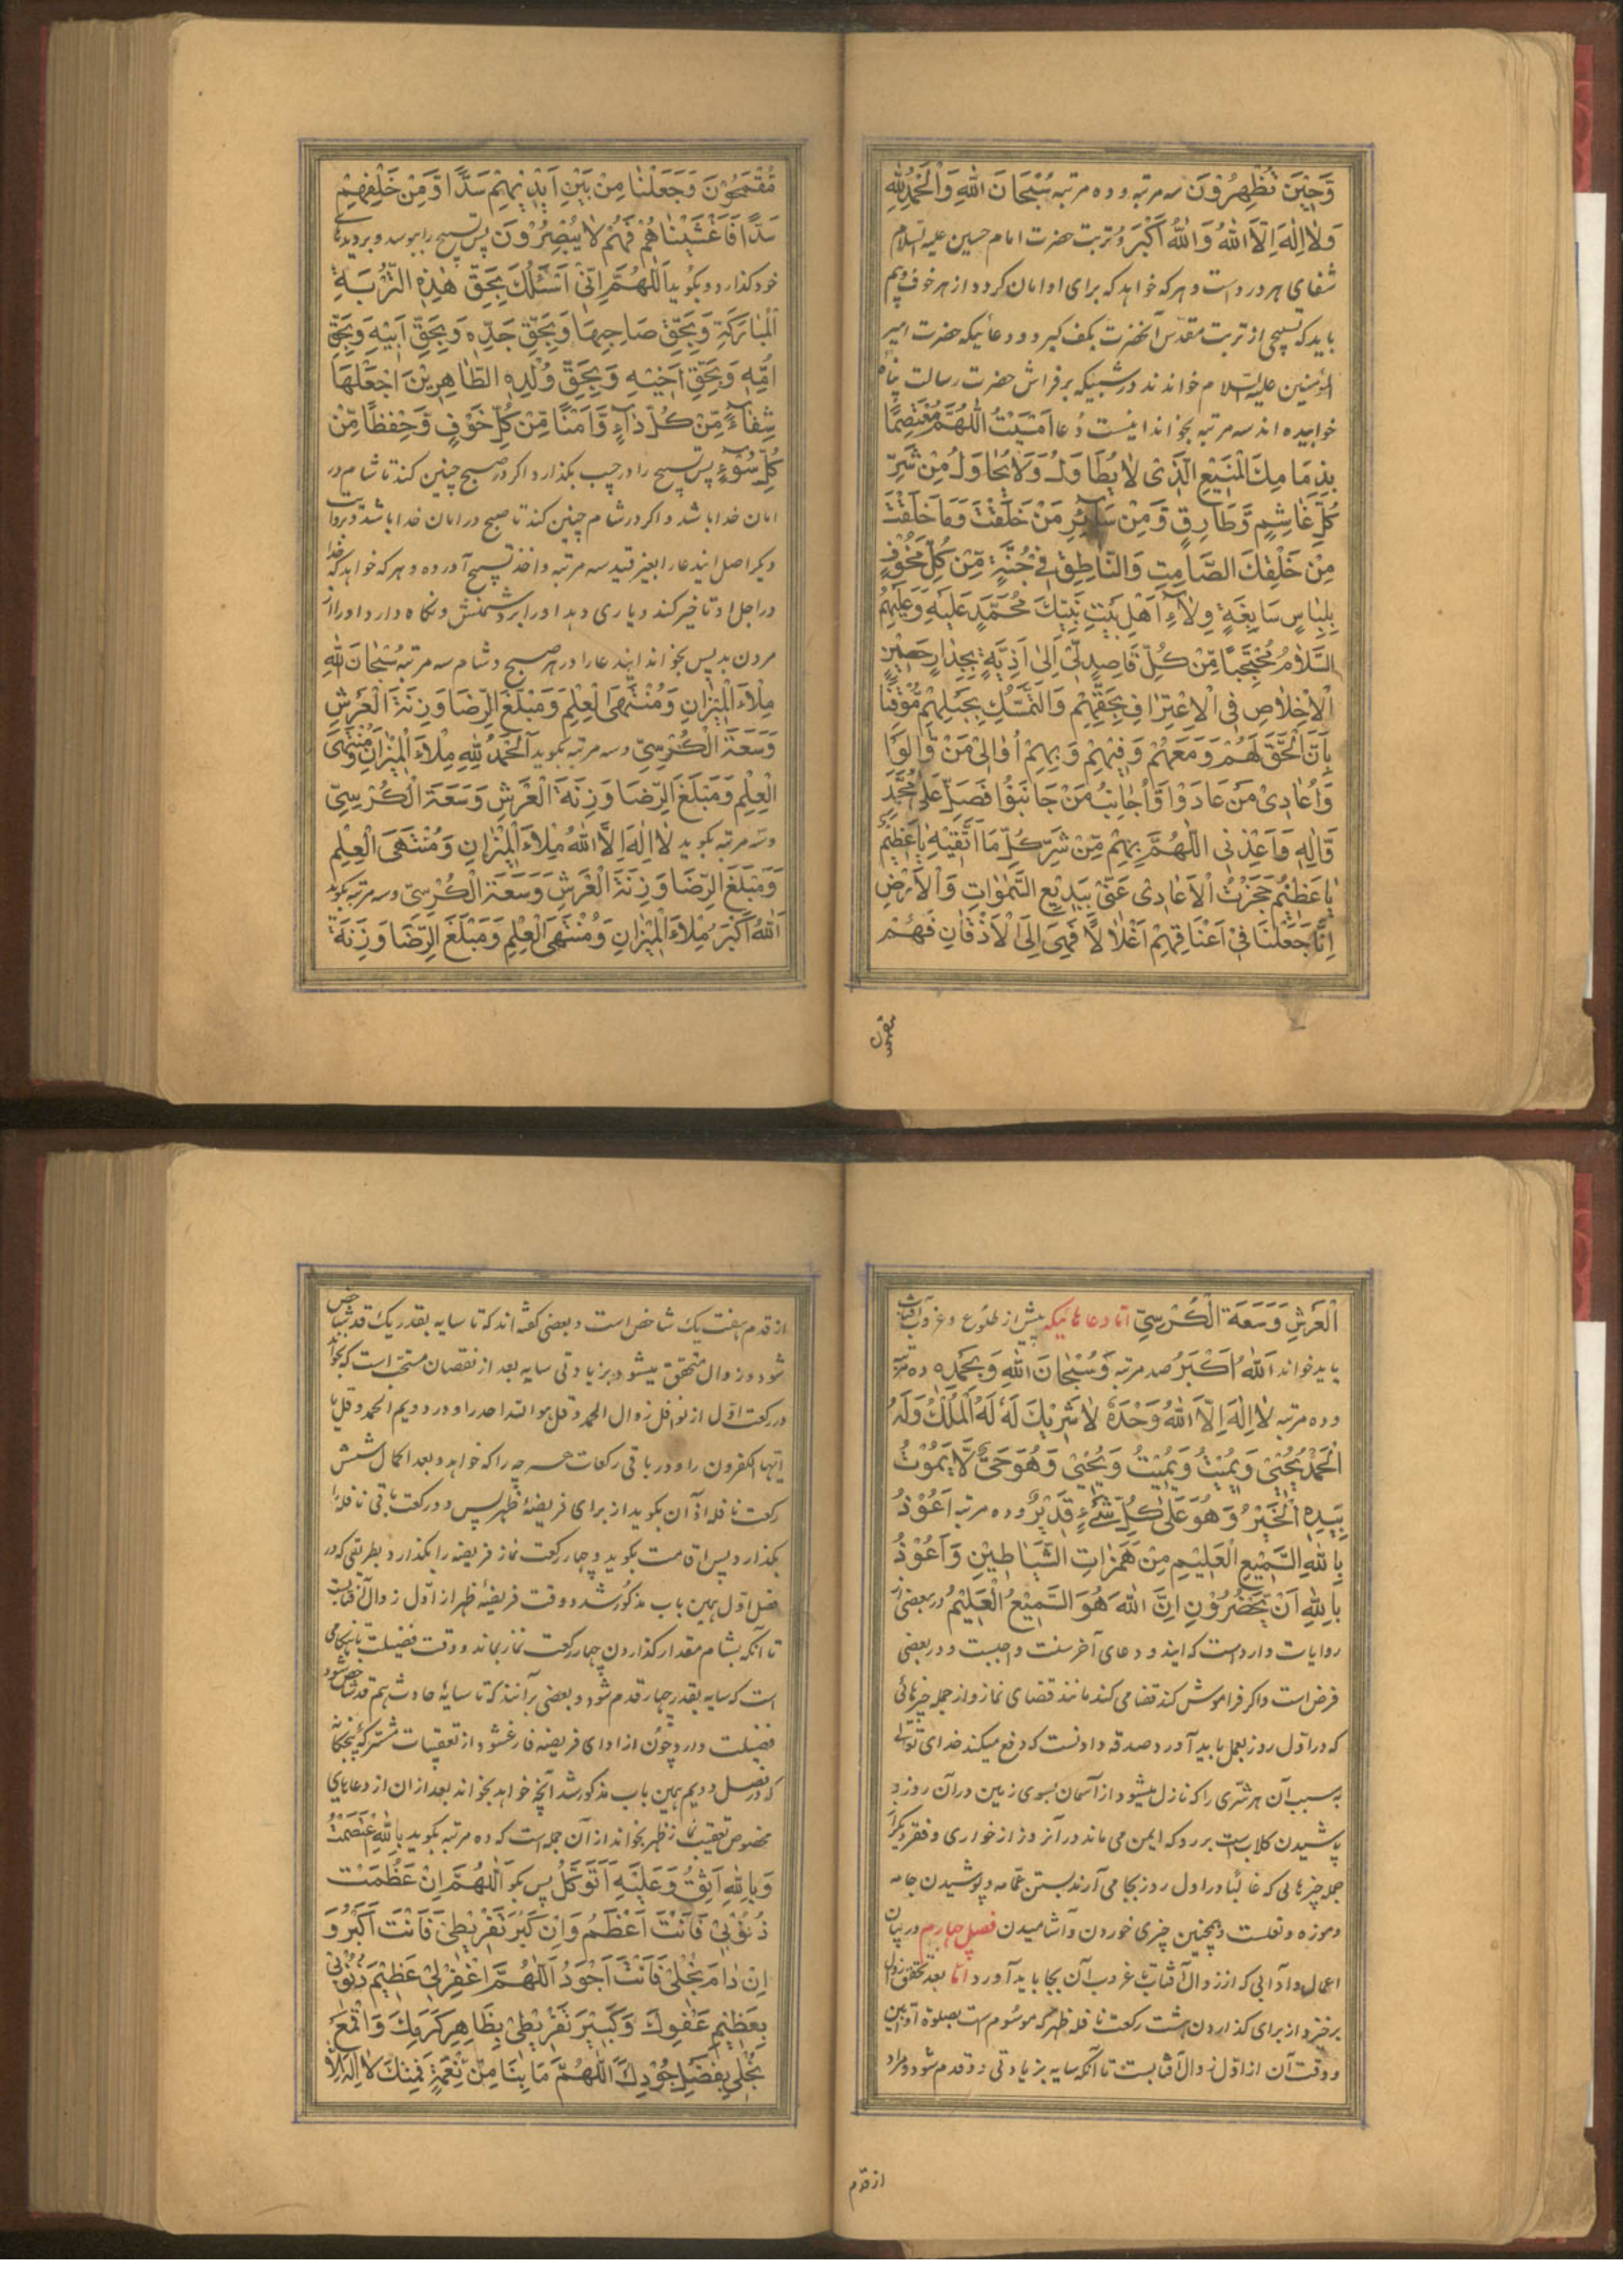 وَحِيْنَ تُظْهِرُوْنَ سه مرتبه و ده مرتبه سُبْحَانَ اللهِ وَالْحَمْدُ لِلّٰهِ
وَلَا اِلٰهَ اِلَّا اللهُ وَاللهُ اَكْبَرُ و تربت حضرت امام حسین علیه السلام
شفای هر درد است و هر که خواهد که برای او امان کردد از هر خوف و بیم
باید که تسبیحی از تربت مقدس آنحضرت بکف کیرد و دعائیکه حضرت امیر
المؤمنین علیه السلام خواندند در شبیکه بر فراش حضرت رسالت پناه
خوابیده اند سه مرتبه بخواند اینست دعا اَمْسَيْتُ اَللّٰهُمَّ مُعْتَصِمًا
بِذِمَامِكَ الْمَنِيْعِ الَّذِيْ لَا يُطَاوَلُ وَلَا يُحَاوَلُ مِنْ شَرِّ
كُلِّ غَاشِمٍ وَّطَارِقٍ وَّمِنْ سَآئِرِ مَنْ خَلَقْتَ وَمَا خَلَقْتَ
مِنْ خَلْقِكَ الصَّامِتِ وَالنَّاطِقِ فِيْ جُنَّةٍ مِّنْ كُلِّ مَخُوْفٍ
بِلِبَاسٍ سَابِغَةٍ وِلَآءِ اَهْلِ بَيْتِ نَبِيِّكَ مُحَمَّدٍ عَلَيْهِ وَعَلَيْهِمُ
السَّلَامُ مُحْتَجِبًا مِّنْ كُلِّ قَاصِدٍ لِيْ اِلٰى اَذِيَّةٍ بِجِدَارٍ حَصِيْنٍ
الْاِخْلَاصِ فِي الْاِعْتِرَافِ بِحَقِّهِمْ وَالتَّمَسُّكِ بِحَبْلِهِمْ مُوْقِنًا
بِاَنَّ الْحَقَّ لَهُمْ وَمَعَهُمْ وَفِيْهِمْ وَبِهِمْ اُوَالِيْ مَنْ وَّالَوْا
وَاُعَادِيْ مَنْ عَادَوْا وَاُجَانِبُ مَنْ جَانَبُوْا فَصَلِّ عَلٰى مُحَمَّدٍ
وَّاٰلِهٖ وَاَعِذْنِي اللّٰهُمَّ بِهِمْ مِّنْ شَرِّ كُلِّ مَا اَتَّقِيْهِ يَا عَظِيْمُ
يَا عَظِيْمُ حَجَزْتُ الْاَعَادِيْ عَنِّيْ بِبَدِيْعِ السَّمٰوَاتِ وَالْاَرْضِ
اِنَّا جَعَلْنَا فِيْ اَعْنَاقِهِمْ اَغْلَالًا فَهِيَ اِلَى الْاَذْقَانِ فَهُمْ
مقمحون
مُقْمَحُوْنَ وَجَعَلْنَا مِنْ بَيْنِ اَيْدِيْهِمْ سَدًّا وَّمِنْ خَلْفِهِمْ
سَدًّا فَاَغْشَيْنَاهُمْ فَهُمْ لَا يُبْصِرُوْنَ پس تسبیح را ببوسد و بر دیدهای
خود کذارد و بکوید اَللّٰهُمَّ اِنِّيْ اَسْئَلُكَ بِحَقِّ هٰذِهِ التُّرْبَةِ
الْمُبَارَكَةِ وَبِحَقِّ صَاحِبِهَا وَبِحَقِّ جَدِّهٖ وَبِحَقِّ اَبِيْهِ وَبِحَقِّ
اُمِّهٖ وَبِحَقِّ اَخِيْهِ وَبِحَقِّ وُلْدِهِ الطَّاهِرِيْنَ اجْعَلْهَا
شِفَآءً مِّنْ كُلِّ دَآءٍ وَّاَمْنًا مِّنْ كُلِّ خَوْفٍ وَّحِفْظًا مِّنْ
كُلِّ سُوْءٍ پس تسبیح را در جیب بکذارد و اکر در صبح چنین کند تا شام در
امان خدا باشد و اکر در شام چنین کند تا صبح در امان خدا باشد و بروایت
دیکر اصل ایندعا را بغیر قید سه مرتبه و اخذ تسبیح آورده و هر که خواهد که خدا
در اجل او تاخیر کند و یاری دهد او را بر دشمنش و نکاه دارد او را از
مردن بد پس بخواند ایندعا را در هر صبح و شام سه مرتبه سُبْحَانَ اللهِ
مِلْاَ الْمِيْزَانِ وَمُنْتَهَى الْعِلْمِ وَمَبْلَغَ الرِّضَا وَزِنَةَ الْعَرْشِ
وَسَعَةَ الْكُرْسِيِّ و سه مرتبه بکوید اَلْحَمْدُ لِلّٰهِ مِلْاَ الْمِيْزَانِ وَمُنْتَهَى
الْعِلْمِ وَمَبْلَغَ الرِّضَا وَزِنَةَ الْعَرْشِ وَسَعَةَ الْكُرْسِيِّ
و سه مرتبه بکوید لَا اِلٰهَ اِلَّا اللهُ مِلْاَ الْمِيْزَانِ وَمُنْتَهَى الْعِلْمِ
وَمَبْلَغَ الرِّضَا وَزِنَةَ الْعَرْشِ وَسَعَةَ الْكُرْسِيِّ و سه مرتبه بکوید
اَللهُ اَكْبَرُ مِلْاَ الْمِيْزَانِ وَمُنْتَهَى الْعِلْمِ وَمَبْلَغَ الرِّضَا وَزِنَةَ
الْعَرْشِ وَسَعَةَ الْكُرْسِيِّ اما دعاهائیکه پیش از طلوع و غروب آفتاب
باید خواند اَللهُ اَكْبَرُ صد مرتبه وَسُبْحَانَ اللهِ وَبِحَمْدِهٖ ده مرتبه
و ده مرتبه لَا اِلٰهَ اِلَّا اللهُ وَحْدَهٗ لَا شَرِيْكَ لَهٗ لَهُ الْمُلْكُ وَلَهُ
الْحَمْدُ يُحْيِيْ وَيُمِيْتُ وَيُمِيْتُ وَيُحْيِيْ وَهُوَ حَيٌّ لَّا يَمُوْتُ
بِيَدِهِ الْخَيْرُ وَهُوَ عَلٰى كُلِّ شَيْءٍ قَدِيْرٌ و ده مرتبه اَعُوْذُ
بِاللهِ السَّمِيْعِ الْعَلِيْمِ مِنْ هَمَزَاتِ الشَّيَاطِيْنِ وَاَعُوْذُ
بِاللهِ اَنْ يَّحْضُرُوْنِ اِنَّ اللهَ هُوَ السَّمِيْعُ الْعَلِيْمُ در بعضی از
روایات وارد است که ایندو دعای آخر سنت واجبست و در بعضی
فرض است و اکر فراموش کند قضا می کند مانند قضای نماز و از جمله چیزهائی
که در اول روز بعمل باید آورد صدقه دادنست که دفع میکند خدای تعالی
بسبب آن هر شری را که نازل میشود از آسمان بسوی زمین در آن روز و
پاشیدن کلابست بر رو که ایمن می ماند در آنروز از خواری و فقر و دیکر از
جمله چیزهائی که غالبا در اول روز بجا می آرند بستن عمامه و پوشیدن جامه
و موزه و نعلست و همچنین چیزی خوردن و آشامیدن فصل چهارم در بیان
اعمال و آدابی که از زوال آفتاب تا غروب آن بجا باید آورد اما بعد تحقق زوال
برخیزد از برای کذاردن هشت رکعت نافله ظهر که موسوم است بصلوة اوابین
و وقت آن از اول زوال آفتابست تا آنکه سایه بزیادتی دو قدم شود و مراد
از قدم
از قدم هفت یک شاخص است و بعضی کفته اند که تا سایه بقدر یک قد شاخص
شود و زوال متحقق میشود بزیادتی سایه بعد از نقصان مستحب است که بخواند
در رکعت اول از نوافل زوال الحمد و قل هو الله احد را و در دویم الحمد و قل یا
ایها الکفرون را و در باقی رکعات هر چه را که خواهد و بعد اکمال شش
رکعت نافله اذان بکوید از برای فریضهٔ ظهر پس دو رکعت باقی نافله را
بکذارد پس اقامت بکوید و چهار رکعت نماز فریضه را بکذارد و بطریقی که در
فصل اول همین باب مذکور شد و وقت فریضهٔ ظهر از اول زوال آفتابست
تا آنکه بشام مقدار کذاردن چهار رکعت نماز بماند و وقت فضیلت تا هنکامی
است که سایه بقدر چهار قدم شود و بعضی برآنند که تا سایهٔ حادث بهم قد شاخص شود
فضیلت دارد و چون از ادای فریضه فارغ شود از تعقیبات مشترکهٔ پنجکانه
که در فصل دویم همین باب مذکور شد آنچه خواهد بخواند بعد از ان از دعاهای
مخصوص تعقیب نماز ظهر بخواند از آن جمله است که ده مرتبه بکوید بِاللهِ اعْتَصَمْتُ
وَبِاللهِ اَثِقُ وَعَلَيْهِ اَتَوَكَّلُ پس بکو اَللّٰهُمَّ اِنْ عَظُمَتْ
ذُنُوْبِيْ فَاَنْتَ اَعْظَمُ وَاِنْ كَبُرَ تَفْرِيْطِيْ فَاَنْتَ اَكْبَرُ وَ
اِنْ دَامَ بُخْلِيْ فَاَنْتَ اَجْوَدُ اَللّٰهُمَّ اغْفِرْ لِيْ عَظِيْمَ ذُنُوْبِيْ
بِعَظِيْمِ عَفْوِكَ وَكَبِيْرَ تَفْرِيْطِيْ بِظَاهِرِ كَرَمِكَ وَاقْمَعْ
بُخْلِيْ بِفَضْلِ جُوْدِكَ اَللّٰهُمَّ مَا بِنَا مِنْ نِّعْمَةٍ فَمِنْكَ لَا اِلٰهَ اِلَّا